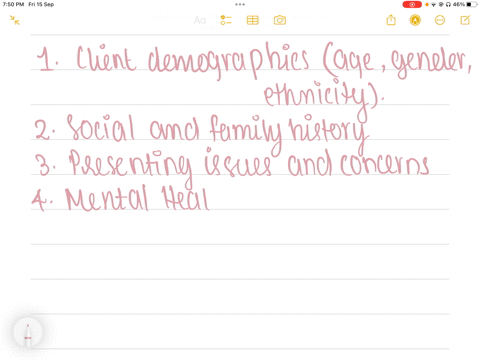 7:50 PM Fri 15 Sep
46%
Aa
1. Client demographics (age, gender,
ethnicity).
2. Social and family history
3. Presenting issues and concerns
4. Mental Heal